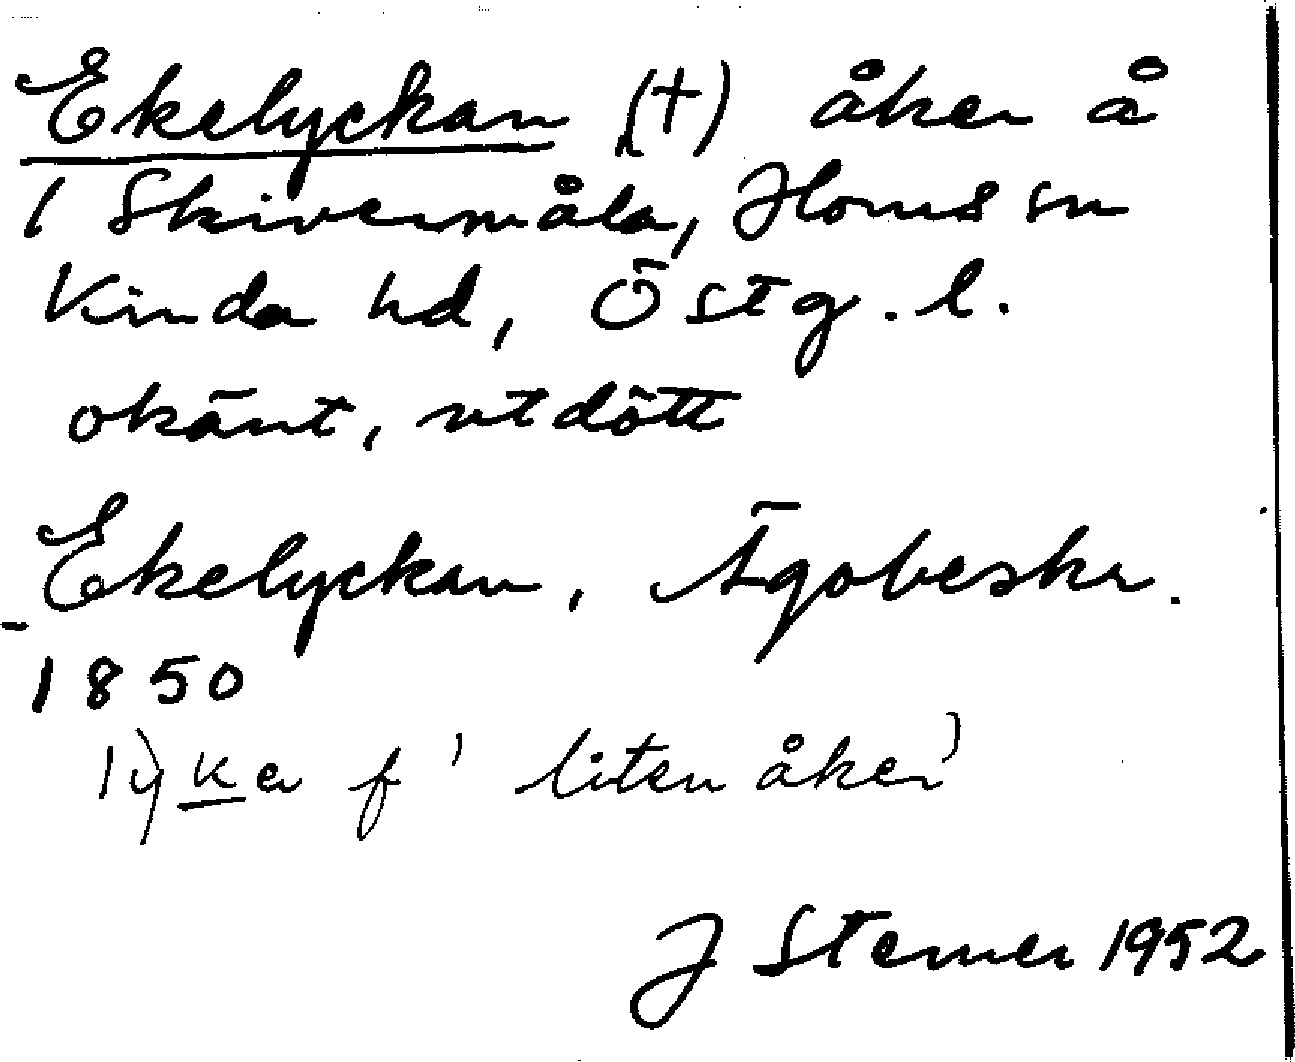 Ekelyckan (†) åker å
1 Skivermåla, Horns sn
Kinda hd, Östg. l.
okänt, utdött
Ekelyckan, Ägobeskr.
1850
lyka f 'liten åker'
J Sterner 1952